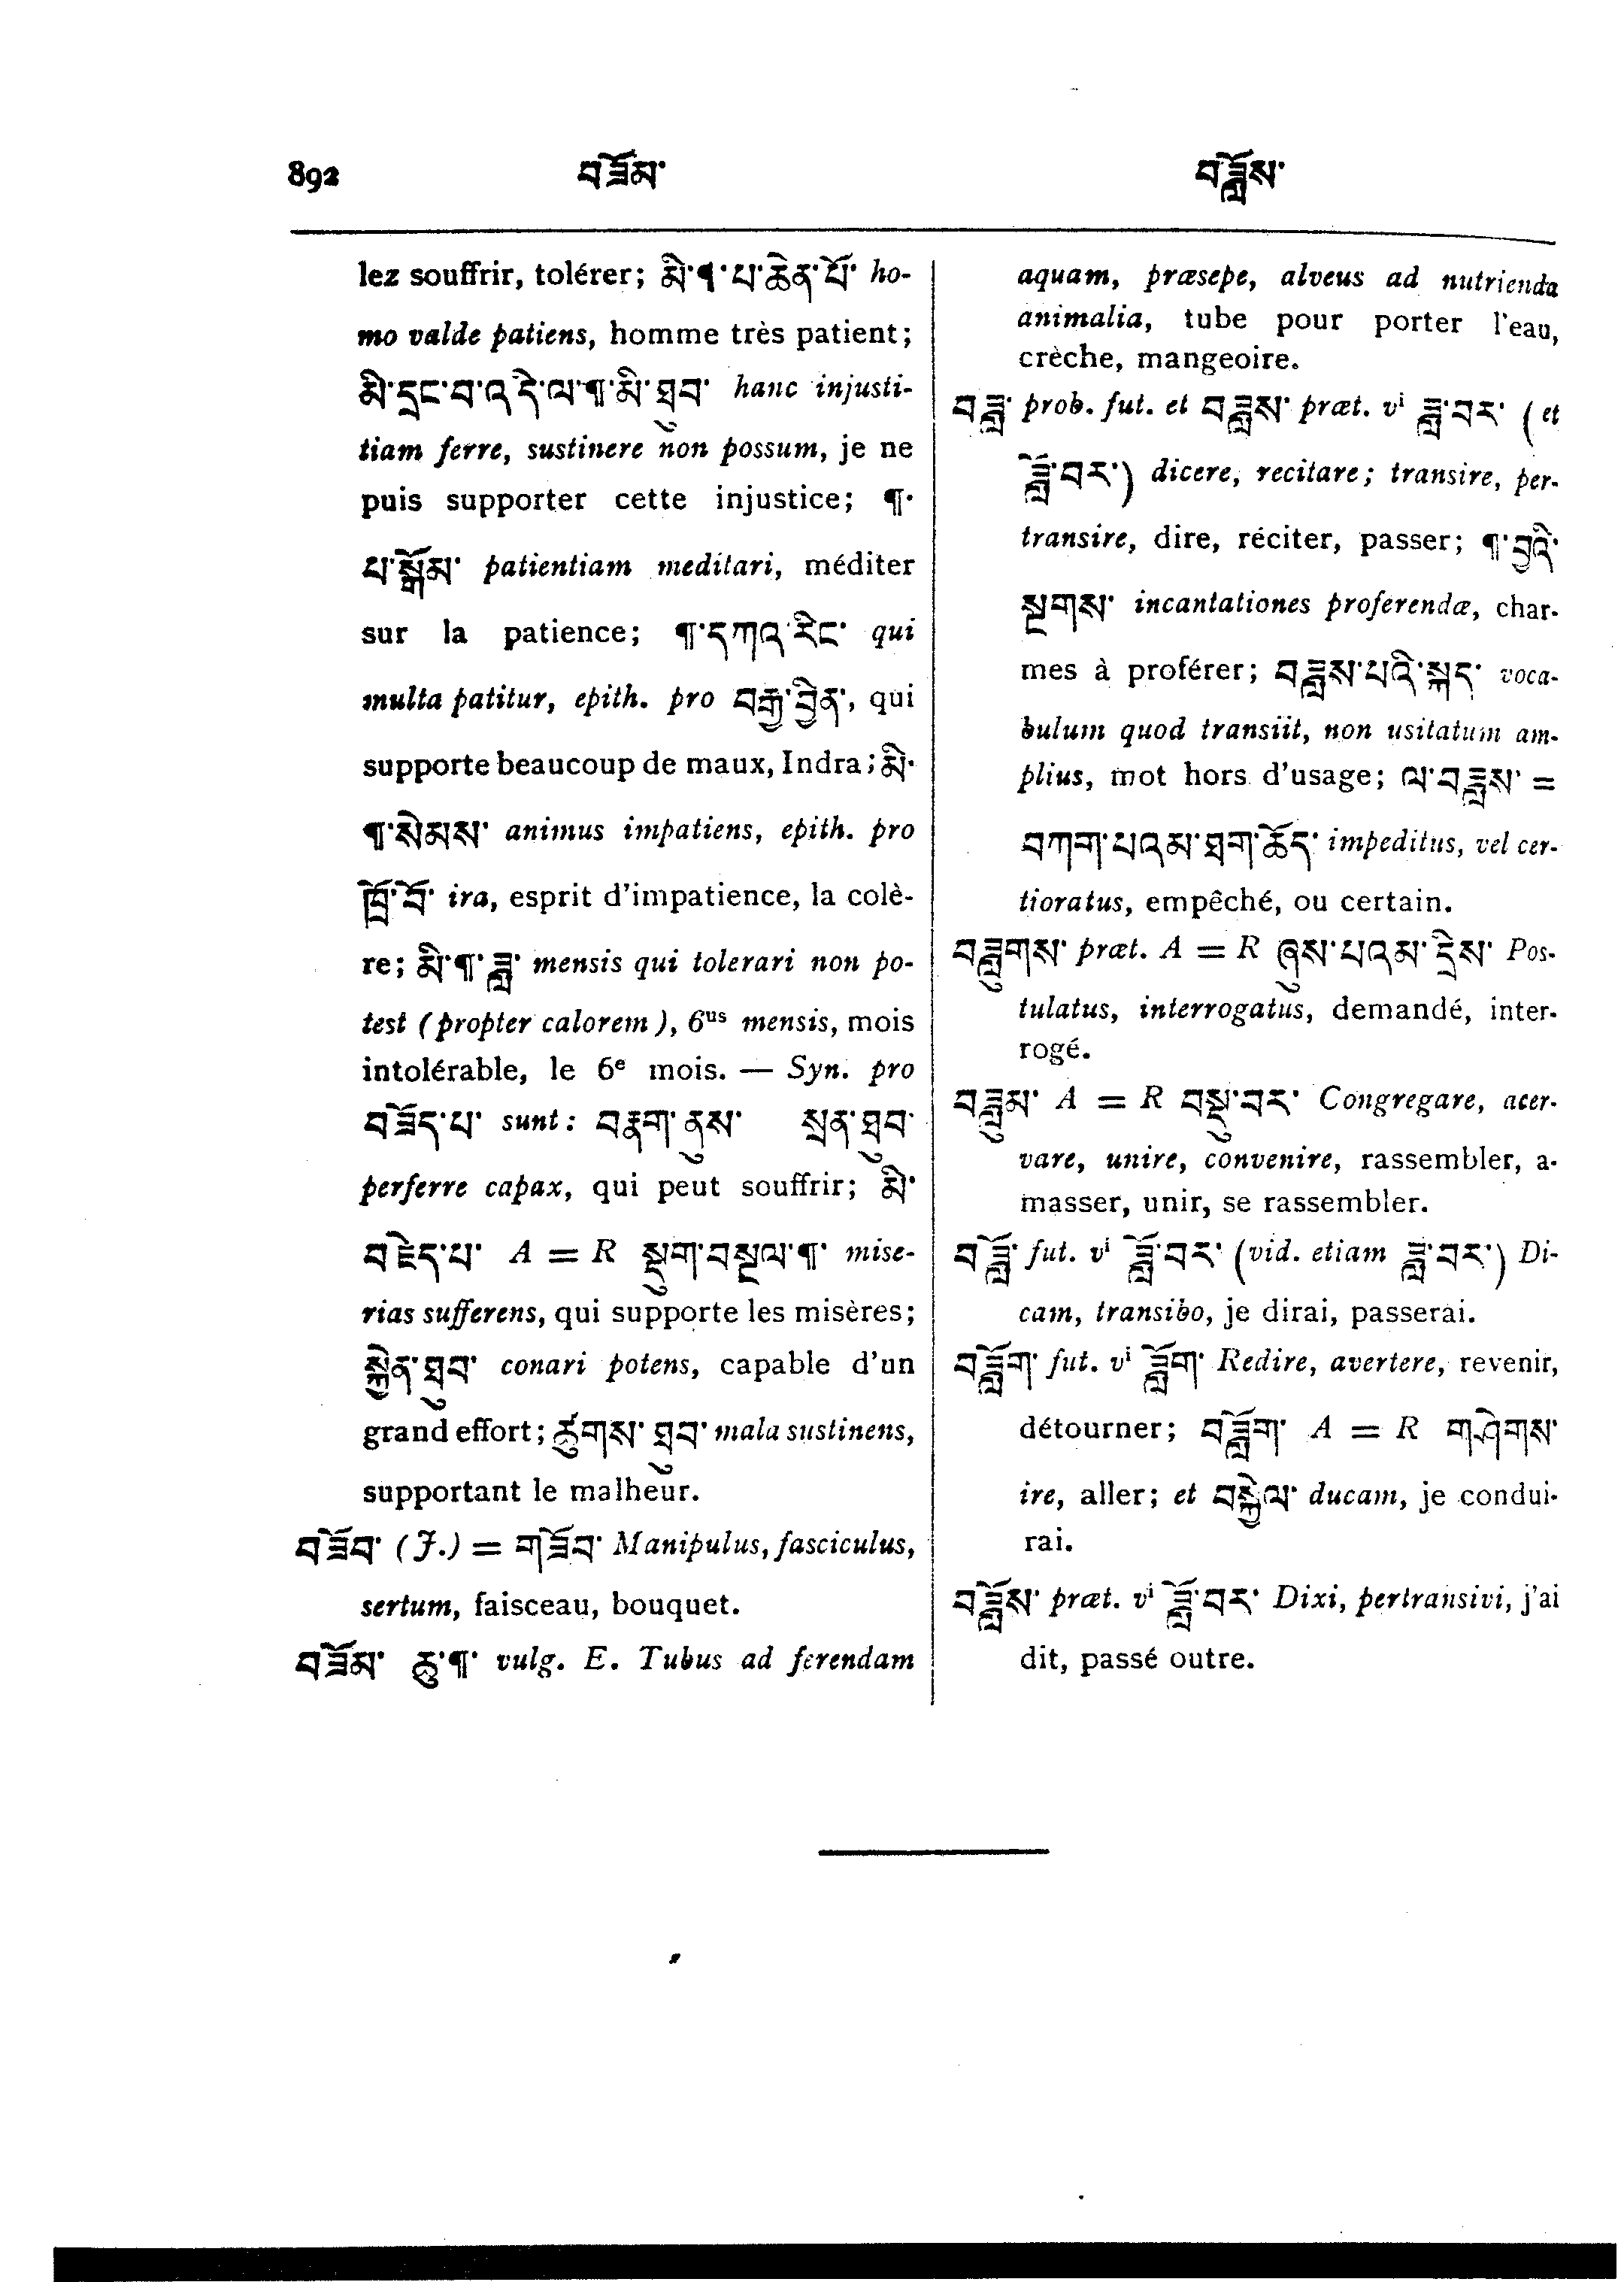 892 བཟོམ་ བཟློས་
lez souffrir, tolérer; མི་¶་པ་ཆེན་པོ་ ho-
mo valde patiens, homme très patient;
མི་དྲང་བ་འདི་ལ་¶་མི་ཐུབ་ hanc injusti-
tiam ferre, sustinere non possum, je ne
puis supporter cette injustice; ¶་
པ་སྒོམ་ patientiam meditari, méditer
sur la patience; ¶་དཀའ་རིང་ qui
multa patitur, epith. pro བརྒྱ་བྱིན་, qui
supporte beaucoup de maux, Indra; མི་
¶་སེམས་ animus impatiens, epith. pro
ཁྲོ་བོ་ ira, esprit d'impatience, la colè-
re; མི་¶་ཟླ་ mensis qui tolerari non po-
test (propter calorem), 6us mensis, mois
intolérable, le 6e mois. — Syn. pro
བཟོད་པ་ sunt: བརྣག་ནུས་ སྲན་ཐུབ་
perferre capax, qui peut souffrir; མི་
བཇེད་པ་ A = R སྡུག་བསྔལ་¶་ mise-
rias sufferens, qui supporte les misères;
སྐྱེན་ཐུབ་ conari potens, capable d'un
grand effort; ཚུགས་ ཐུབ་ mala sustinens,
supportant le malheur.
བཟོབ་ (J.) = གཟོབ་ Manipulus, fasciculus,
sertum, faisceau, bouquet.
བཟོམ་ ཆུ་¶་ vulg. E. Tubus ad ferendam
aquam, præsepe, alveus ad nutrienda
animalia, tube pour porter l'eau,
crèche, mangeoire.
བཟླ་ prob. fut. et བཟླས་ præt. vi ཟླ་བར་ (et
ཟློ་བར་) dicere, recitare; transire, per-
transire, dire, réciter, passer; ¶་བྱའི་
སྔགས་ incantationes proferendæ, char-
mes à proférer; བཟླས་པའི་སྐད་ voca-
bulum quod transiit, non usitatum am-
plius, mot hors d'usage; ལ་བཟླས་ =
བཀག་པའམ་ཐག་ཆོད་ impeditus, vel cer-
tioratus, empêché, ou certain.
བཟླུགས་ præt. A = R ཞུས་པའམ་དྲིས་ Pos-
tulatus, interrogatus, demandé, inter-
rogé.
བཟླུམ་ A = R བསྡུ་བར་ Congregare, acer-
vare, unire, convenire, rassembler, a-
masser, unir, se rassembler.
བཟློ་ fut. vi ཟློ་བར་ (vid. etiam ཟླ་བར་) Di-
cam, transibo, je dirai, passerai.
བཟློག་ fut. vi ཟློག་ Redire, avertere, revenir,
détourner; བཟློག་ A = R གཤེགས་
ire, aller; et བསྐྱེལ་ ducam, je condui-
rai.
བཟློས་ præt. vi ཟློ་བར་ Dixi, pertransivi, j'ai
dit, passé outre.